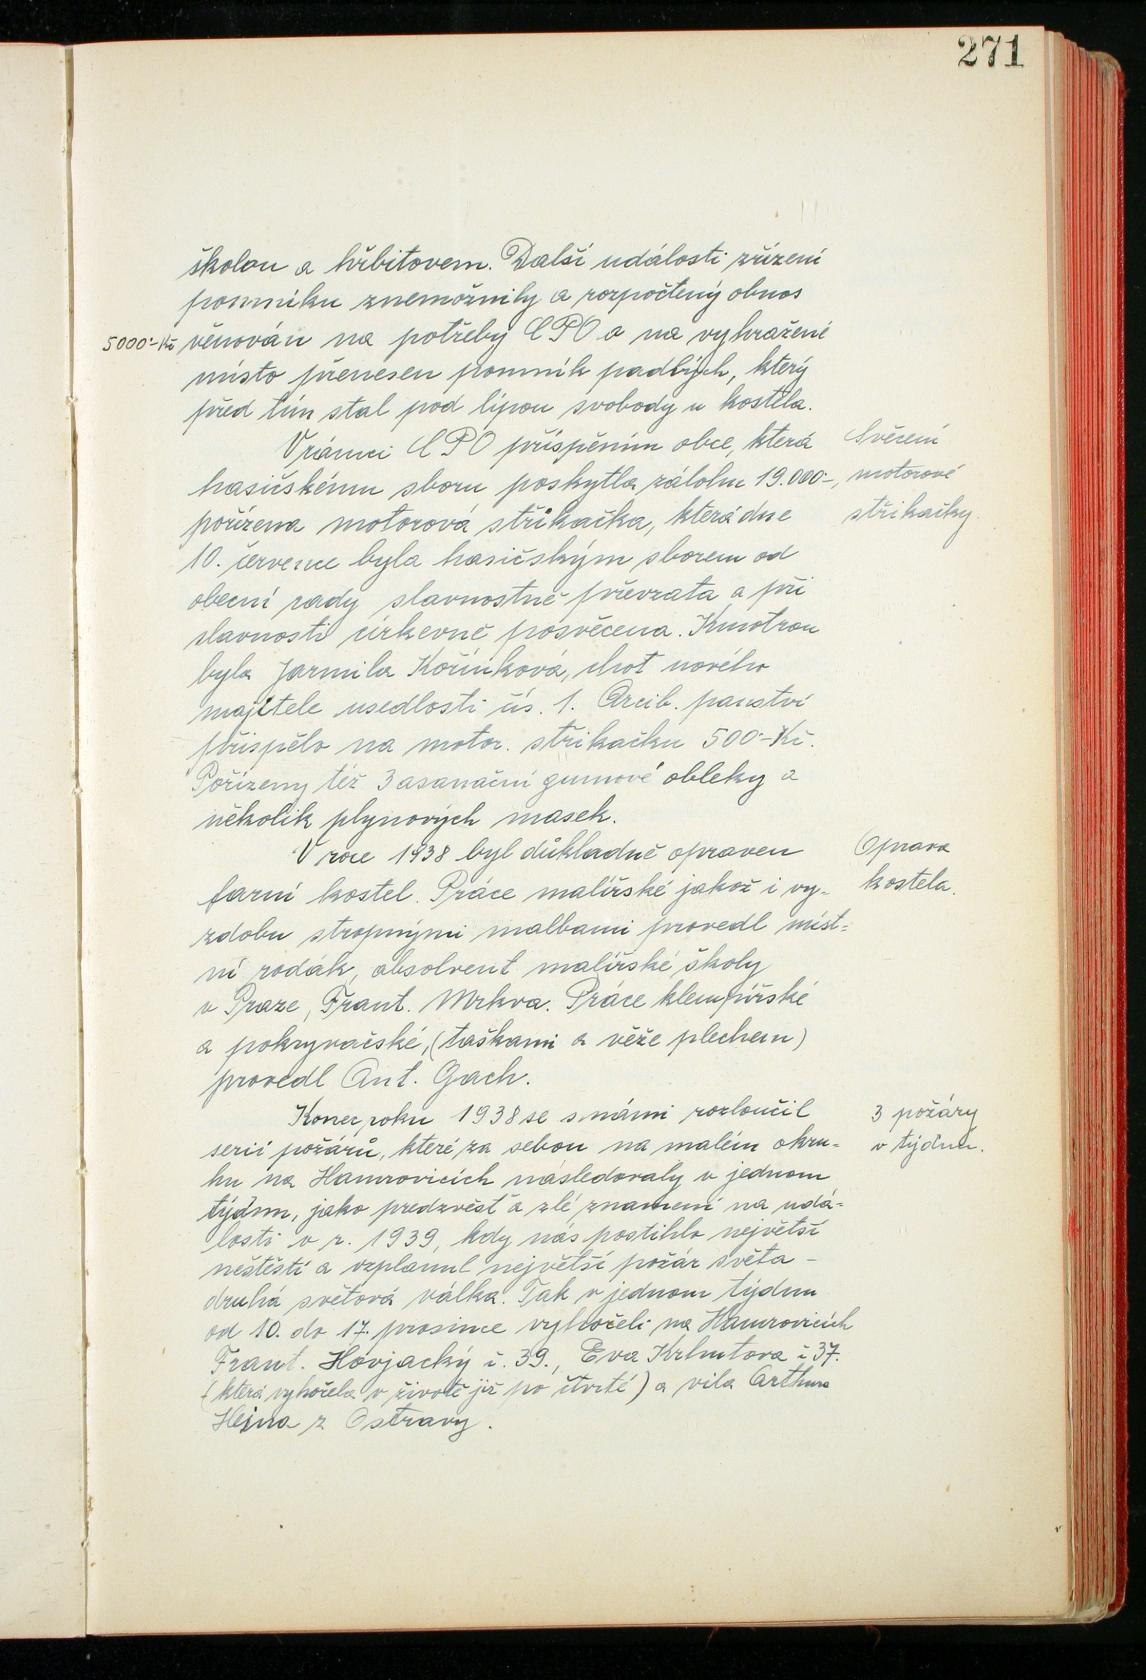 271
školou a hřbitovem. Další události zřízení
pomníku znemožnily a rozpočtený obnos
5000·-Kč věnován na potřeby CPO a na vyhražené
místo přenesen pomník padlých, který
před tím stál pod lípou svobody u kostela.
Vrámci CPO přispěním obce, která
hasičskému sboru poskytla zálohu 19.000·-,
pořízena motorová stříkačka, která dne
10. července byla hasičským sborem od
obecní rady slavnostně převzata a při
slavnosti církevně posvěcena. Kmotrou
byla Jarmila Kořínková, choť nového
majitele usedlosti čís. 1. Arcib. panství
přispělo na motor. stříkačku 500·-Kč.
Pořízeny též 3 asanační gumové obleky a
několik plynových masek.
Svěcení
motorové
stříkačky.
V roce 1938 byl důkladně opraven
farní kostel. Práce malířské jakož i vy-
zdobu stropnými malbami provedl míst=
ní rodák, absolvent malířské školy
v Praze, Frant. Mrkva. Práce klempířské
a pokryvačské, (taškami a věže plechem)
provedl Ant. Gach.
Oprava
kostela.
Konec roku 1938 se s námi rozloučil
serií požárů, které za sebou na malém okru-
hu na Hamrovicích následovaly v jednom
týdnu, jako předzvěst a zlé znamení na udá-
losti v r. 1939, kdy nás postihlo největší
neštěstí a vzplanul největší požár světa –
druhá světová válka. Tak v jednom týdnu
od 10. do 17. prosince vyhořeli na Hamrovicích
Frant. Hovjacký č. 39., Eva Krhutova č 37.
(která vyhořela v životě již po čtvrté) a vila Arthura
Hejna z Ostravy.
3 požáry
v týdnu.